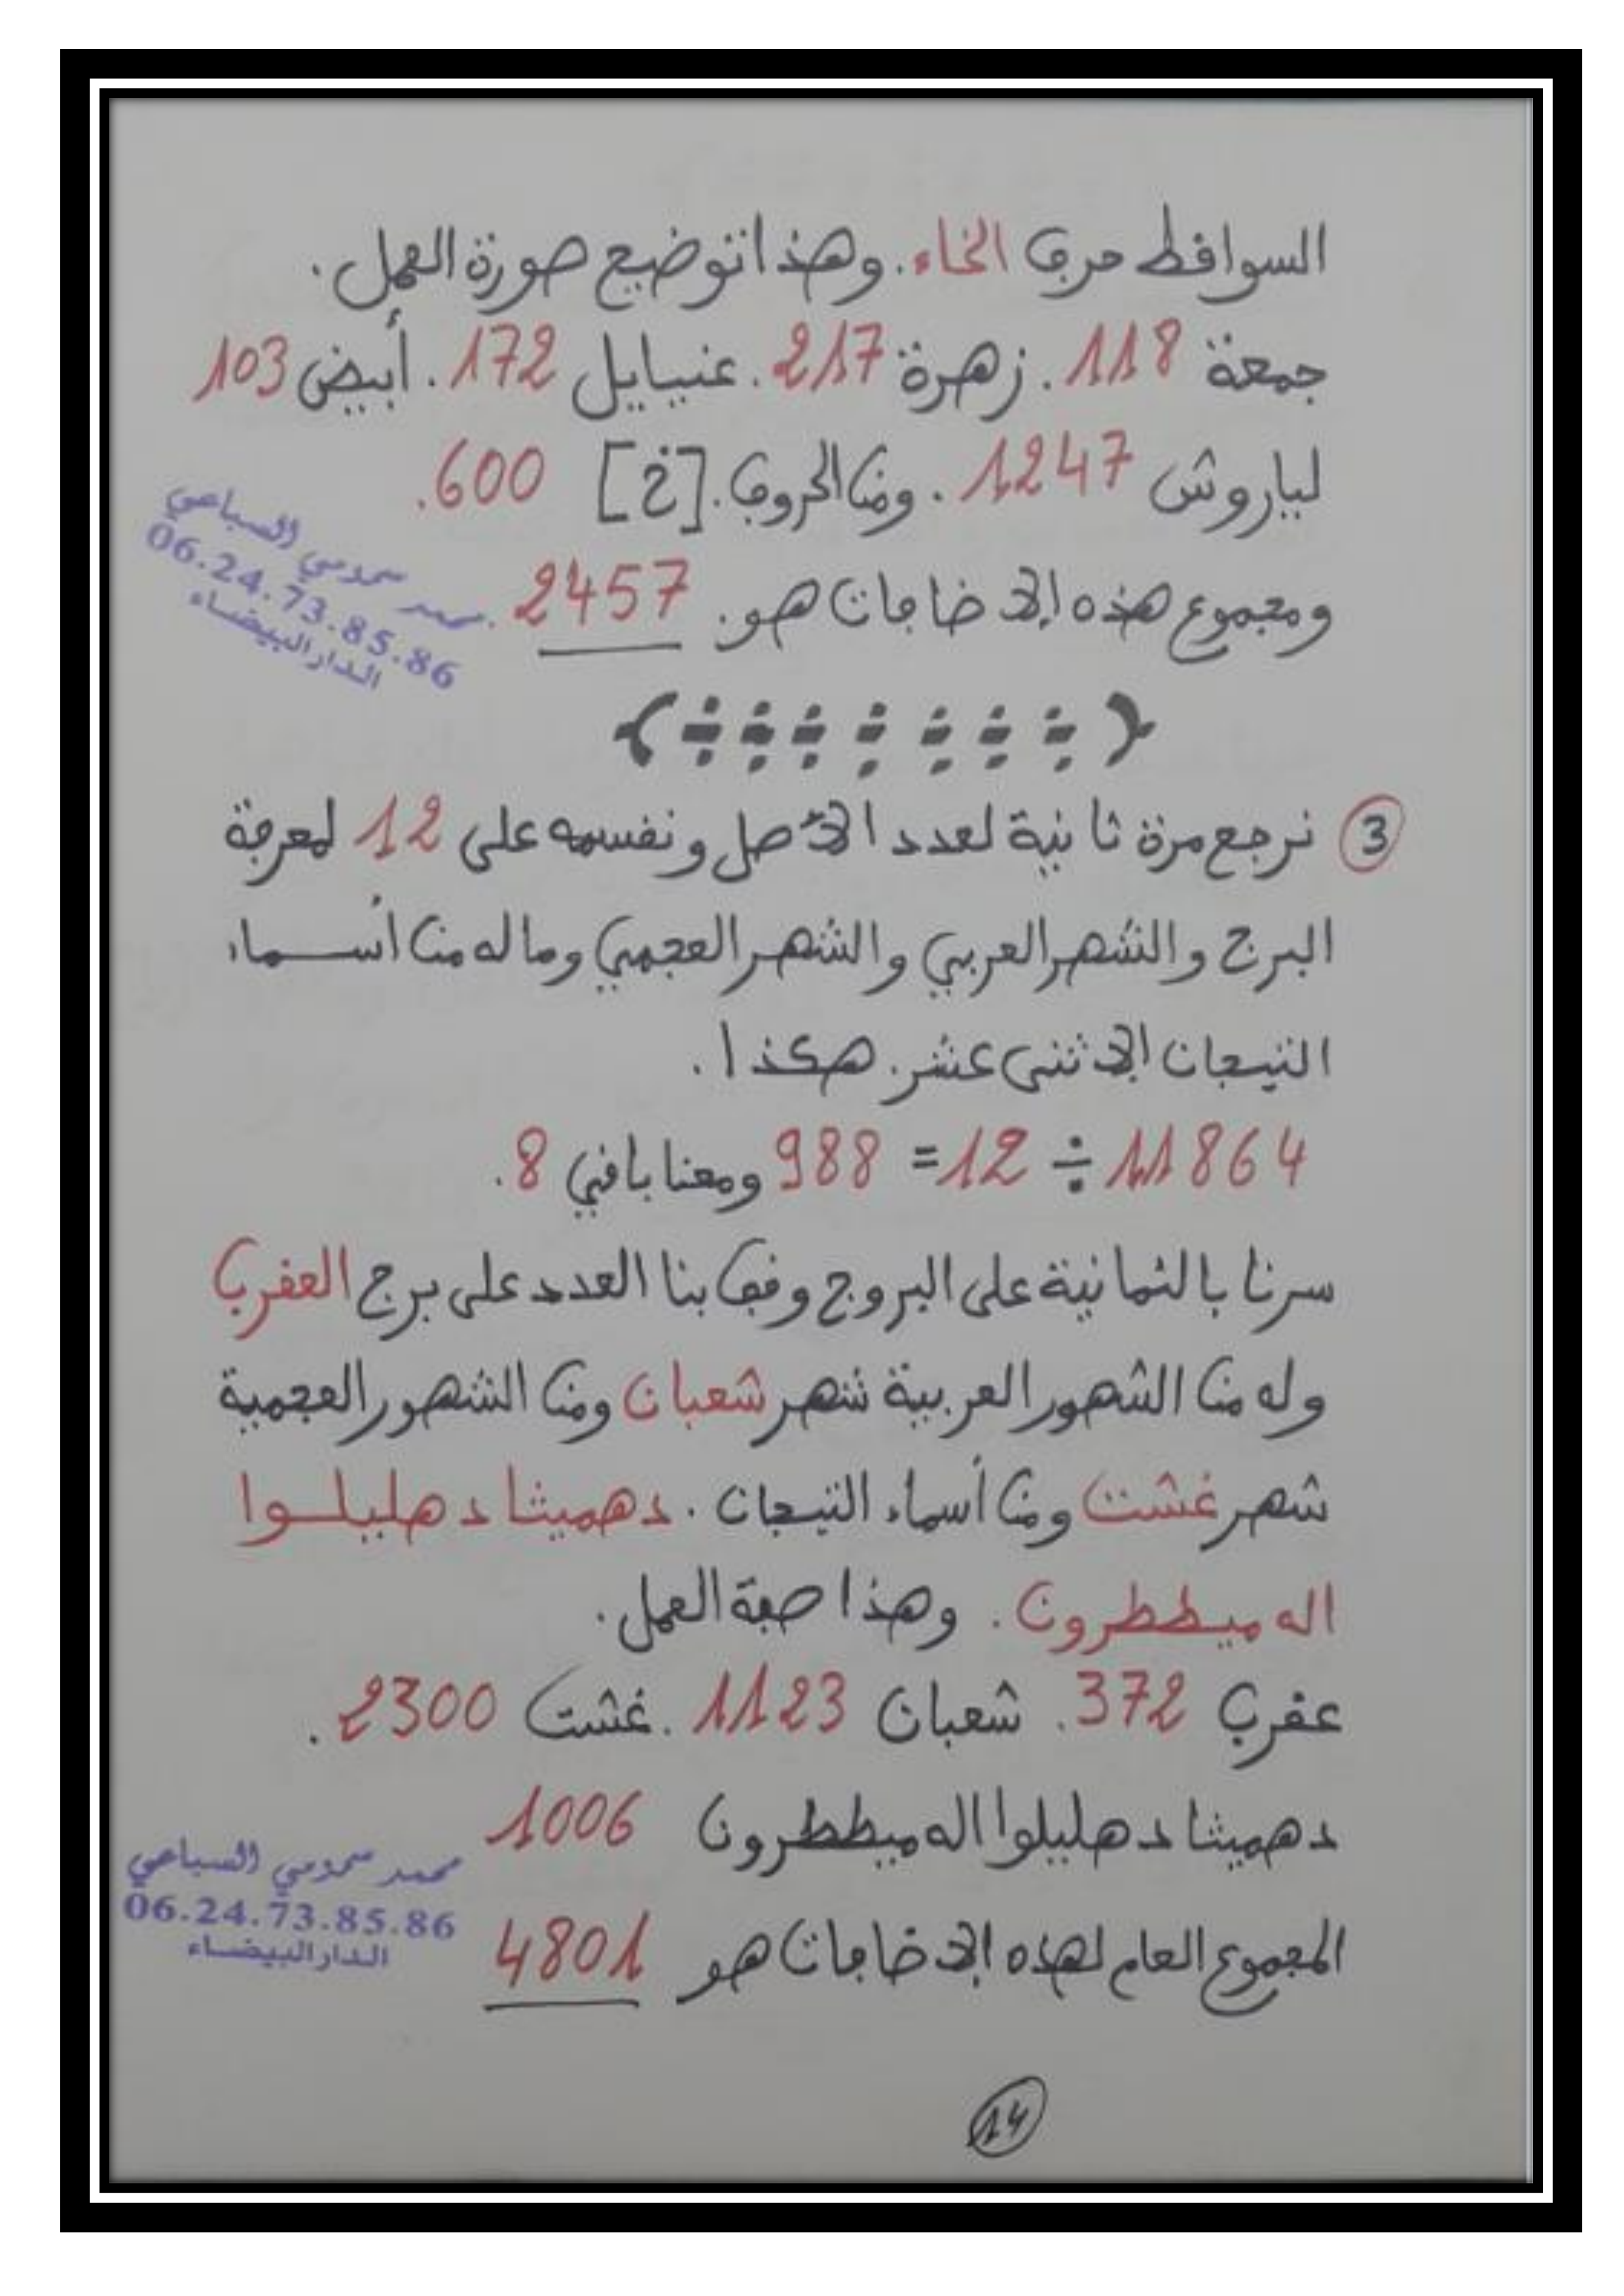 السوافط حرف الخاء. وهذا توضيح صورة العمل.
جمعة 118. زهرة 217. عنيايل 172. أبيض 103
لياروش 1247. ومن الحروف. [خ] 600.
ومجموع هذه الإضافات هو. 2457.
محمد سحومي السباعي
06.24.73.85.86
الدار البيضاء
③ نرجع مرة ثانية لعدد الأصل ونقسمه على 12 لمعرفة
البرج والشهر العربي والشهر العجمي وما له من أسماء
التيجان الإثنى عشر. هكذا.
11864 ÷ 12 = 988 ومعنا باقي 8.
سرنا بالثمانية على البروج وقف بنا العدد على برج العقرب
وله من الشهور العربية شهر شعبان ومن الشهور العجمية
شهر غشت ومن أسماء التيجان. دهميثا دهليلوا
اله ميططرون. وهذا صفة العمل.
عقرب 372. شعبان 1123. غشت 2300.
دهميثا دهليلوا اله ميططرون 1006
المجموع العام لهذه الإضافات هو 4801
محمد سحومي السباعي
06.24.73.85.86
الدار البيضاء
14